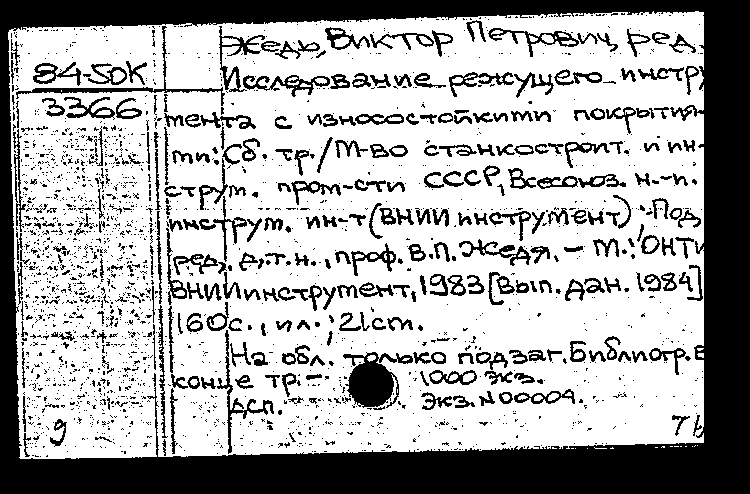 Жедь, Виктор Петрович, ред.
84-5ОК
Исследование режущего инстру
3366
мента с износостойкими покрытия-
ми: Сб. тр./М-во станкостроит. и ин-
струм. пром-сти СССР, Всесоюз. н.-и.
инструм. ин-т (ВНИИинструмент); Под
ред. д.т.н., проф. В.П. Жедя. – М.: ОНТИ
ВНИИинструмент, 1983 [Вып. дан. 1984]
160с., ил.; 21cm.
На обл. только подзаг. Библиогр. в
конце тр. – 1000 экз.
Дсп. Экз. N 00004.
9